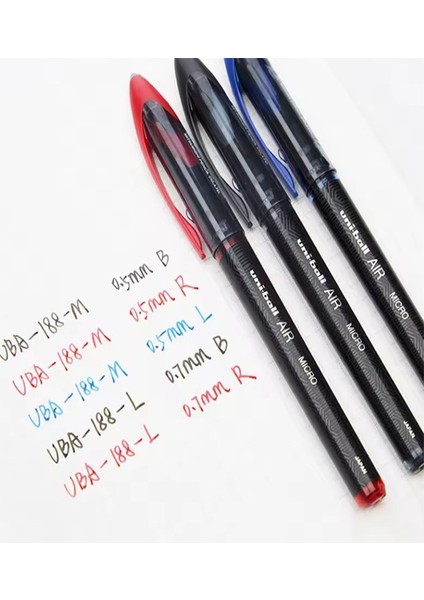 UBA-188-M 0.5mm B
UBA-188-M 0.5mm R
UBA-188-M 0.5mm L
UBA-188-L 0.7mm B
UBA-188-L 0.7mm R
uni-ball AIR MICRO JAPAN
uni-ball AIR MICRO JAPAN
uni-ball AIR MICRO JAPAN